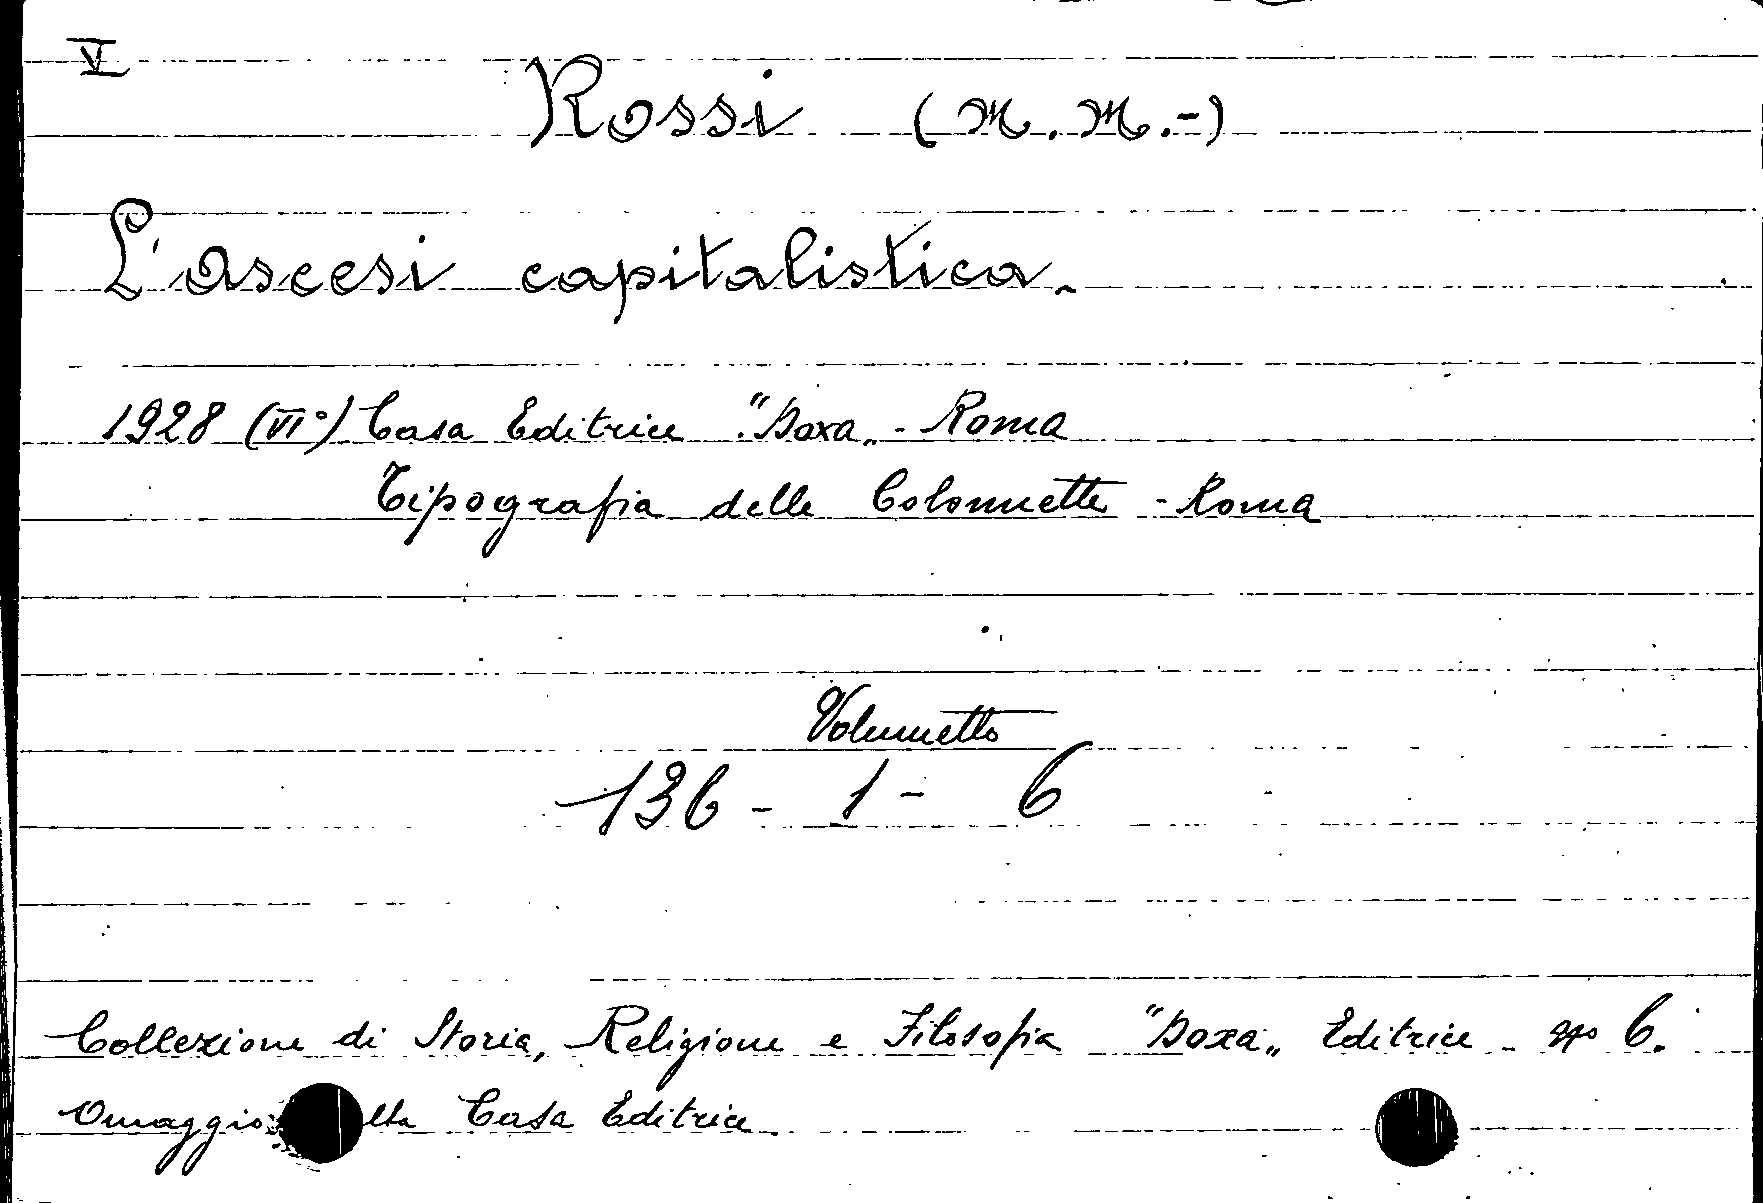 V
Rossi (M. M.-)
L'ascesi capitalistica.
1928 (VI°) Casa Editrice "Doxa„ - Roma
Tipografia delle Colonnette - Roma
Volumetto
136 - 1 - 6
Collezione di Storia, Religione e Filosofia "Doxa„ Editrice - n° 6.
Omaggio lla Casa Editrice